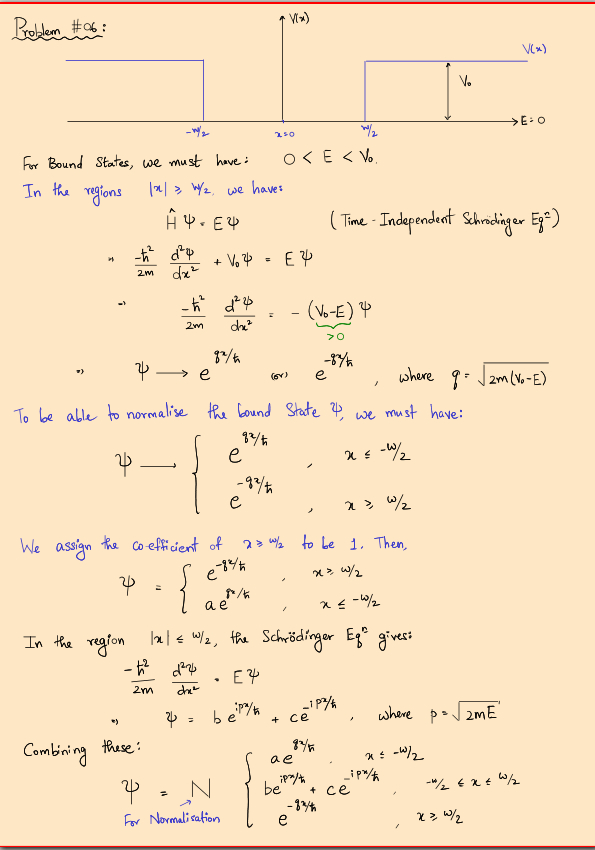 Problem #06:
V(x)
V(x)
V₀
-w/2
x=0
w/2
E=0
For Bound States, we must have: 0 < E < V₀.
In the regions |x| ≥ w/2, we have:
Ĥ Ψ = E Ψ (Time-Independent Schrödinger Eqⁿ)
⇒ -ħ²/2m d²Ψ/dx² + V₀Ψ = E Ψ
⇒ -ħ²/2m d²Ψ/dx² = - (V₀-E) Ψ
>0
⇒ Ψ ⟶ e^{qx/ħ} (or) e^{-qx/ħ}, where q = √2m(V₀-E)
To be able to normalise the bound State Ψ, we must have:
Ψ ⟶ { e^{qx/ħ} , x ≤ -w/2
e^{-qx/ħ} , x ≥ w/2
We assign the co-efficient of x ≥ w/2 to be 1. Then,
Ψ = { e^{-qx/ħ} , x ≥ w/2
a e^{qx/ħ} , x ≤ -w/2
In the region |x| ≤ w/2, the Schrödinger Eqⁿ gives:
-ħ²/2m d²Ψ/dx² = E Ψ
⇒ Ψ = b e^{ipx/ħ} + c e^{-ipx/ħ} , where p = √2mE
Combining these:
a e^{qx/ħ} , x ≤ -w/2
Ψ = N { b e^{ipx/ħ} + c e^{-ipx/ħ} , -w/2 ≤ x ≤ w/2
For Normalisation
e^{-qx/ħ} , x ≥ w/2